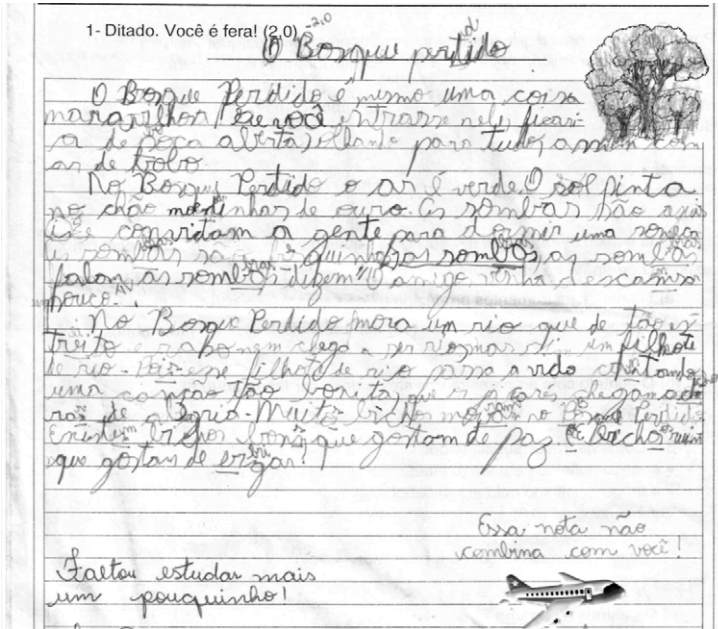 1- Ditado. Você é fera! (2,0) -2,0
O Bosque pertido
O Bosque Perdido é mesmo uma coisa
maravilhosa se você entrasse nele ficari-
a de boca aberta olhando para tudo, assim com
ar de bobo.
No Bosque Perdido o ar é verde. O sol pinta
no chão moedinhas de ouro. As sombras são
e convidam a gente para dormir uma soneca
as sombras são as sombas, as sombas
falam as sombas dizem: "O amigo venha descansar
pouco.
No Bosque Perdido mora um rio que de tão es-
treito e raso nem chega a ser rio, mas sim um filhote
de rio. Pois esse filhote de rio passa a vida cantando
uma canção tão bonita, que os chegam a
de alegria. Muitos bichos moram no Bosque Perdido
Existem bichos bons, que gostam de paz e bichos ruins
que gostam de
Essa nota não
combina com você!
Faltou estudar mais
um pouquinho!